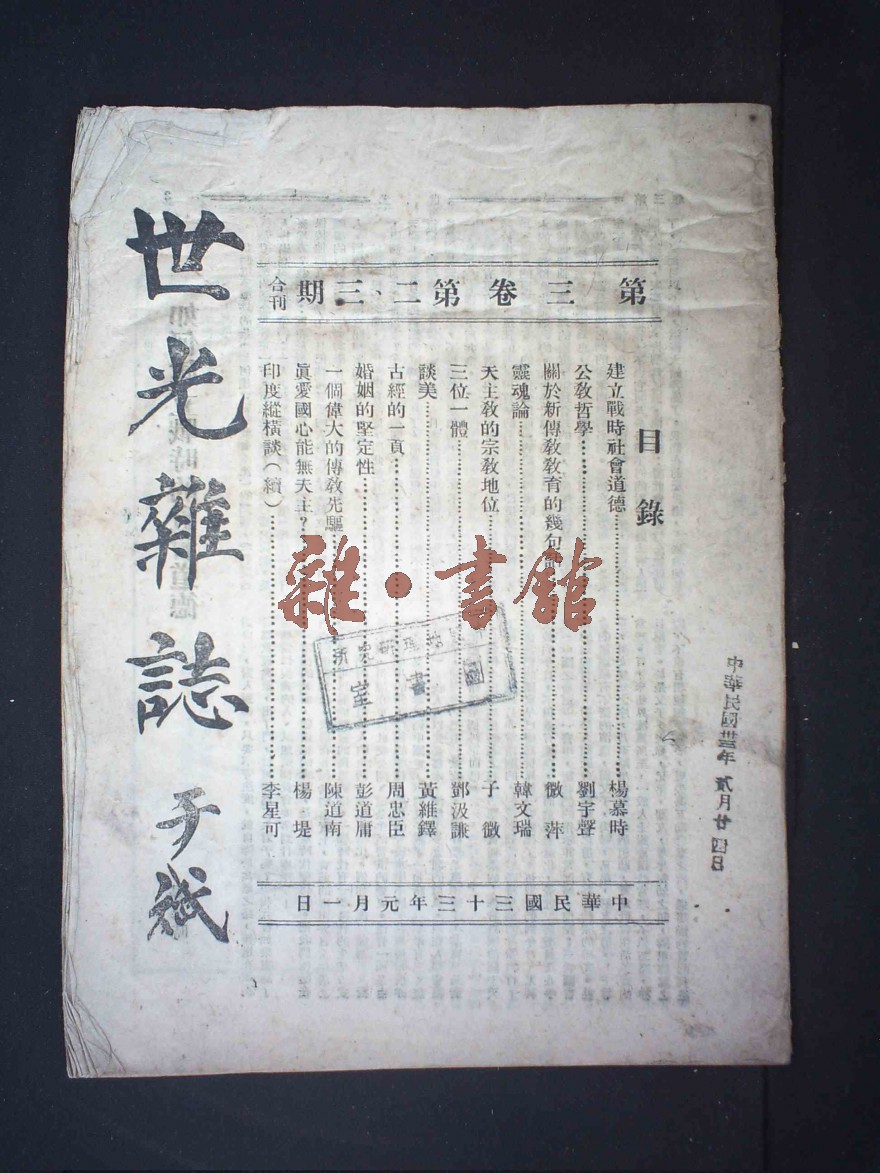 世光雜誌
第三卷第二、三期合刊
目錄
建立戰時社會道德 楊慕時
公教哲學 劉宇聲
關於新傳教教育的幾句話 微萍
靈魂論 韓文瑞
天主教的宗教地位 子微
三位一體 鄧汲謙
談美 黃維鐸
古經的一頁 周忠臣
婚姻的堅定性 彭道庸
一個偉大的傳教先驅 陳道南
眞愛國心能無天主？ 楊堤
印度縱橫談（續） 李星可
中華民國三十三年元月一日
中華民國卅三年貳月廿四日
研究所
圖書室
雜·書館